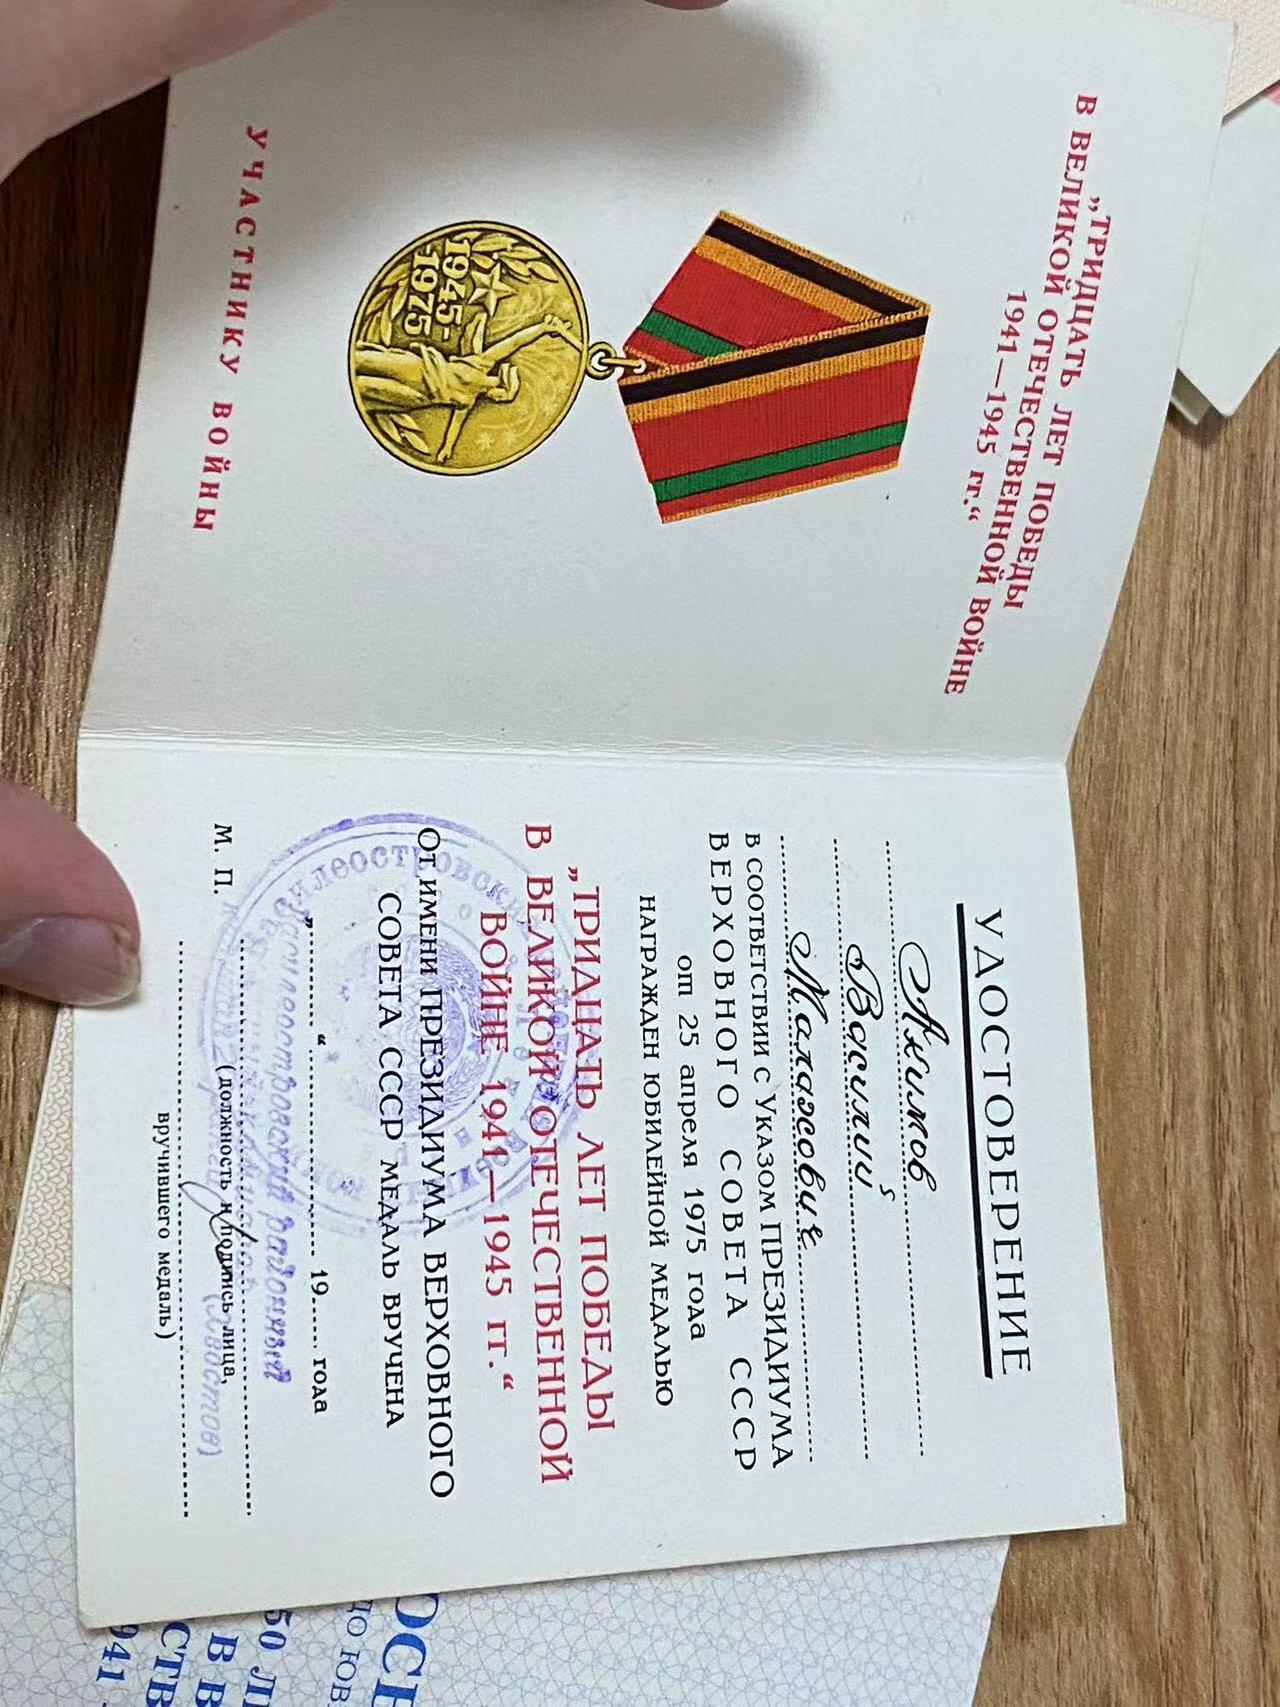 „ТРИДЦАТЬ ЛЕТ ПОБЕДЫ
В ВЕЛИКОЙ ОТЕЧЕСТВЕННОЙ ВОЙНЕ
1941—1945 гг.“
1945-
1975
УЧАСТНИКУ ВОЙНЫ
УДОСТОВЕРЕНИЕ
Акимов
Василий
Малахович
В СООТВЕТСТВИИ С УКАЗОМ ПРЕЗИДИУМА
ВЕРХОВНОГО СОВЕТА СССР
от 25 апреля 1975 года
НАГРАЖДЕН ЮБИЛЕЙНОЙ МЕДАЛЬЮ
„ТРИДЦАТЬ ЛЕТ ПОБЕДЫ
В ВЕЛИКОЙ ОТЕЧЕСТВЕННОЙ
ВОЙНЕ 1941—1945 гг.“
ОТ ИМЕНИ ПРЕЗИДИУМА ВЕРХОВНОГО
СОВЕТА СССР МЕДАЛЬ ВРУЧЕНА
„........“ ................ 19...... года
Василеостровский районный
М. П.
(должность и подпись лица,
вручившего медаль)
50 Л
В В
941